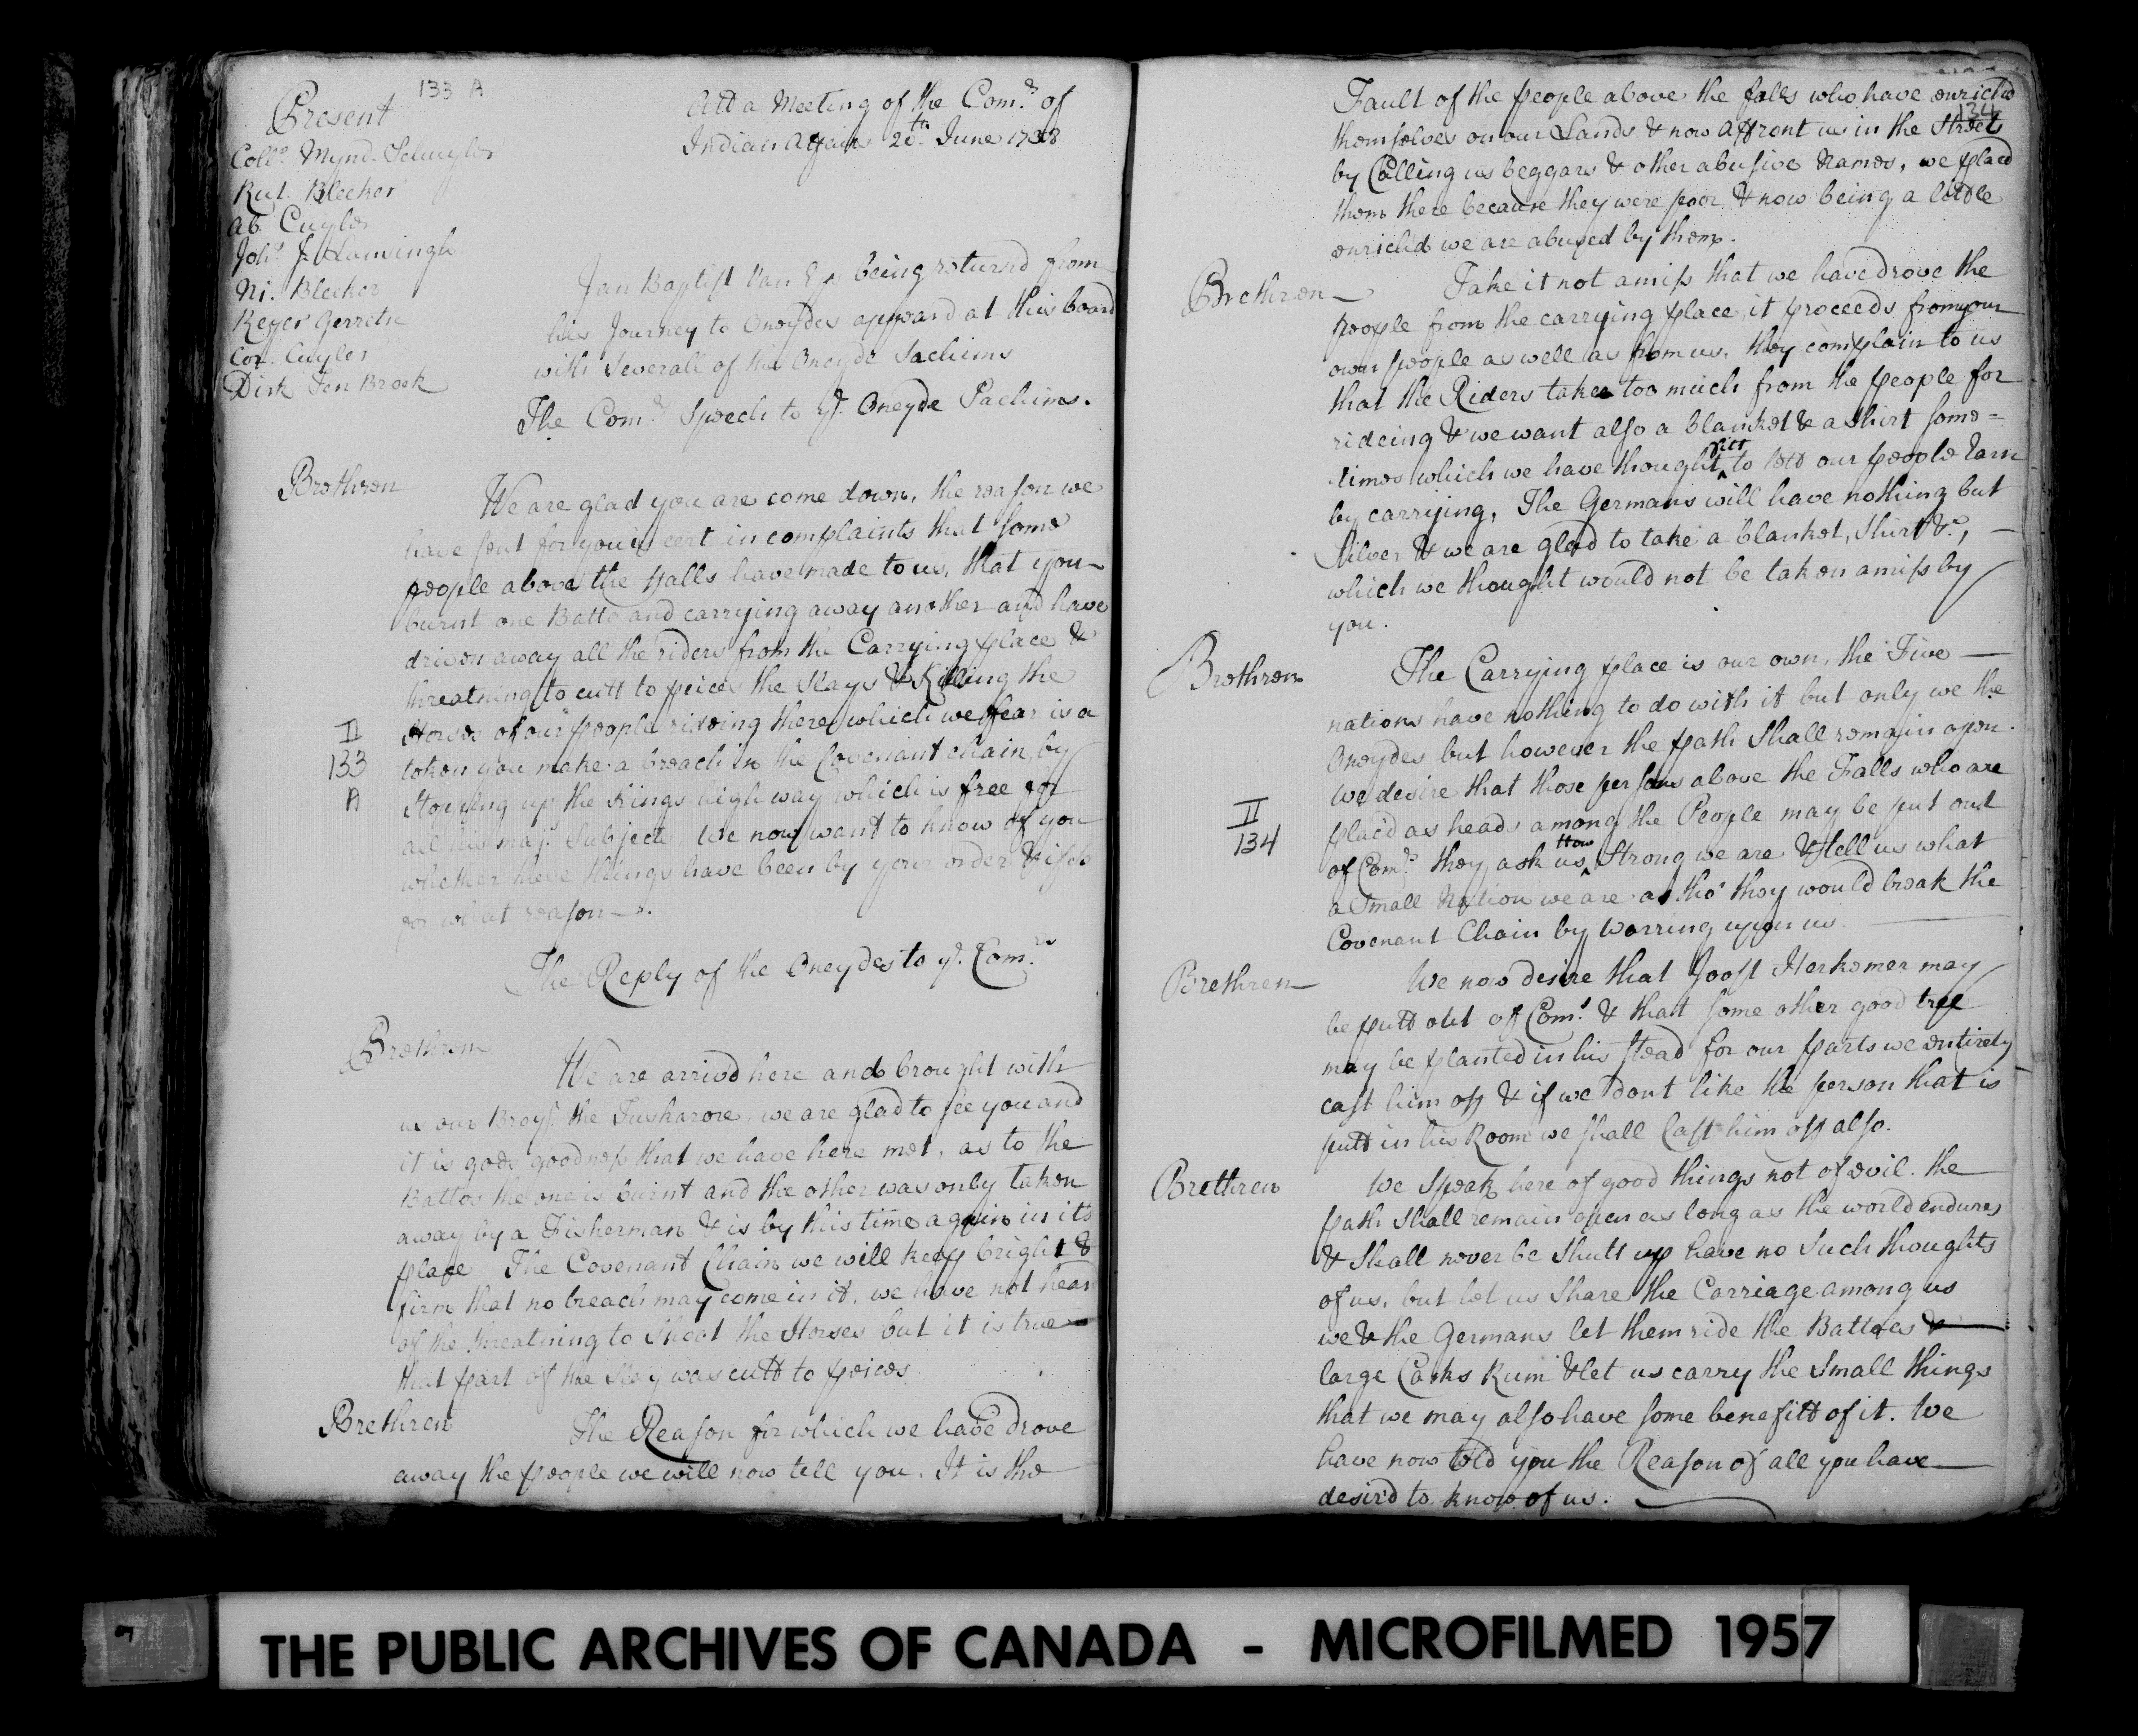 133 A
Present
Coll.º Mynd. Schuyler
Rut. Bleeker
Ab. Cuyler
Joh.s J. Lansingh
Ni. Bleeker
Reyer Gerretse
Cor. Cuyler
Dirk Ten Broek
Att a Meeting of the Com.rs of
Indian Affairs 20.th June 1738
Jan Baptist Van Eps being returnd from
his Journey to Oneydes appeard at this board
with Severall of the Oneyde Sachims
The Com.rs Speech to ye. Oneyde Sachims.
Brethren
We are glad you are come down, the reason we
have sent for you is certain complaints that some
people above the Falls have made to us, that you
burnt one Batto and carrying away another and have
driven away all the riders from the Carrying place &
threatning to cutt to peices the Slays & Killing the
Horses of our people rideing there which we fear is a
II
133
A
token you make a breach in the Covenant chain, by
Stopping up the Kings high way which is free for
all his maj.s Subjects, We now want to know of you
whether these things have been by your order & if so
for what reason
The Reply of the Oneydes to ye. Com.rs
Brethren
We are arrivd here and brought with
us our Broy.s the Tuskarore, we are glad to see you and
it is gods goodness that we have here met, as to the
Battos the one is burnt and the other was only taken
away by a Fisherman & is by this time again in its
place The Covenant Chain we will keep bright &
firm that no breach may come in it, we have not heard
of the threatning to Shoot the Horses but it is true
that part of the Slay was cutt to peices
Brethren
The Reason for which we have drove
away the people we will now tell you. It is the
134
Fault of the people above the falls who have enrich'd
themselves on our Lands & now Affront us in the Streets
by Calling us beggars & other abusive Names, we placd
them there because they were poor & now being a little
enrich'd we are abused by them.
Brethren
Take it not amiss that we have drove the
people from the carrying place, it proceeds from your
own people as well as from us, they complain to us
that the Riders take too much from the people for
rideing & we want also a blanket & a Shirt some=
fitt
times which we have thought to lett our people Earn
by carrying, The Germans will have nothing but
Silver & we are glad to take a blanket, Shirt &c.,
which we thought would not be taken amiss by
you.
Brethren
The Carrying place is our own, the Five
nations have nothing to do with it but only we the
Oneydes but however the path Shall remain open.
We desire that those persons above the Falls who are
II
134
plac'd as heads among the People may be put out
How
of Com.s they ask us Strong we are & tell us what
a Small Nation we are as tho' they would break the
Covenant Chain by Warring upon us.
Brethren
We now desire that Joost Herkemer may
be putt out of Com.s & that some other good tree
may be planted in his stead for our parts we entirely
cast him off & if we dont like the person that is
putt in his Room we shall Cast him off also.
Brethren
We Speak here of good things not of evil. the
path Shall remain open as long as the world endures
& Shall never be Shutt up have no Such thoughts
of us, but let us Share the Carriage among us
we & the Germans let them ride the Battoes &
large Casks Rum & let us carry the Small things
that we may also have some benefitt of it. We
have now told you the Reason of all you have
desir'd to know of us.
THE PUBLIC ARCHIVES OF CANADA - MICROFILMED 1957